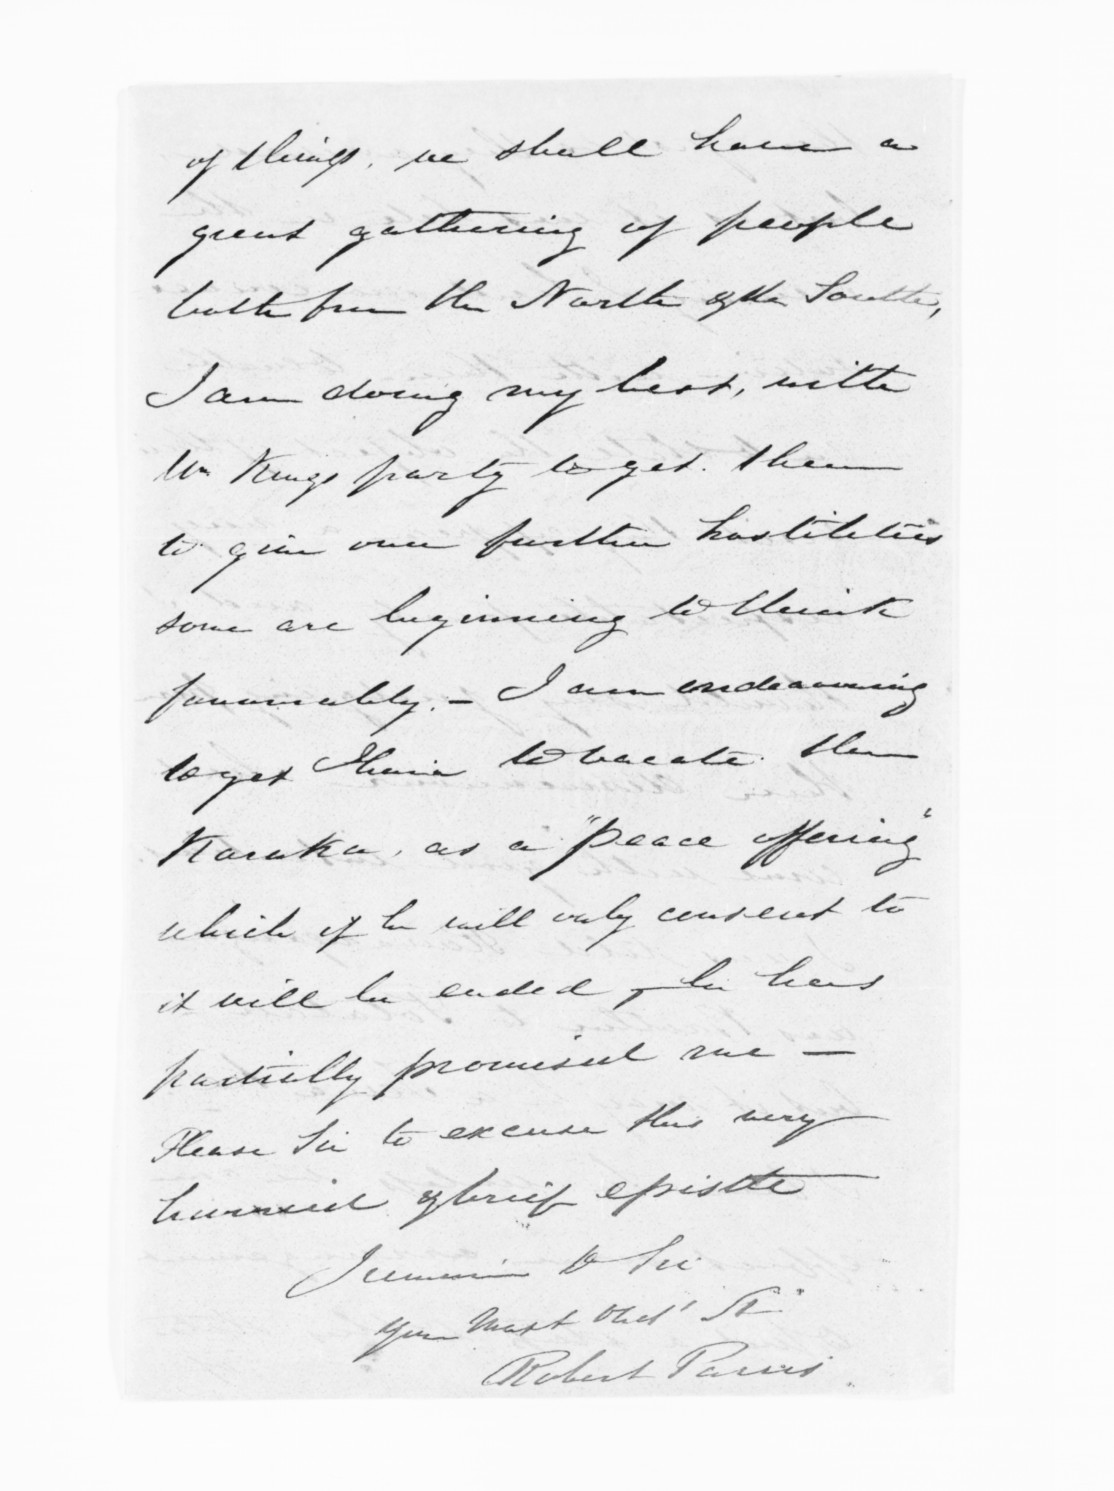 of things, we shall have a
great gathering of people
both from the North & the South,
I am doing my best, with
Wm Kings party to get them
to give over further hostilities
some are beginning to think
favourably. – I am endeavouring
to get Ihaia to vacate the
Karaka, as a "peace offering"
which if he will only consent to
it will be ended, he has
partially promised me —
Please Sir to excuse this very
hurried & brief epistle
I remain D Sir
Your Most Obdt St
Robert Parris